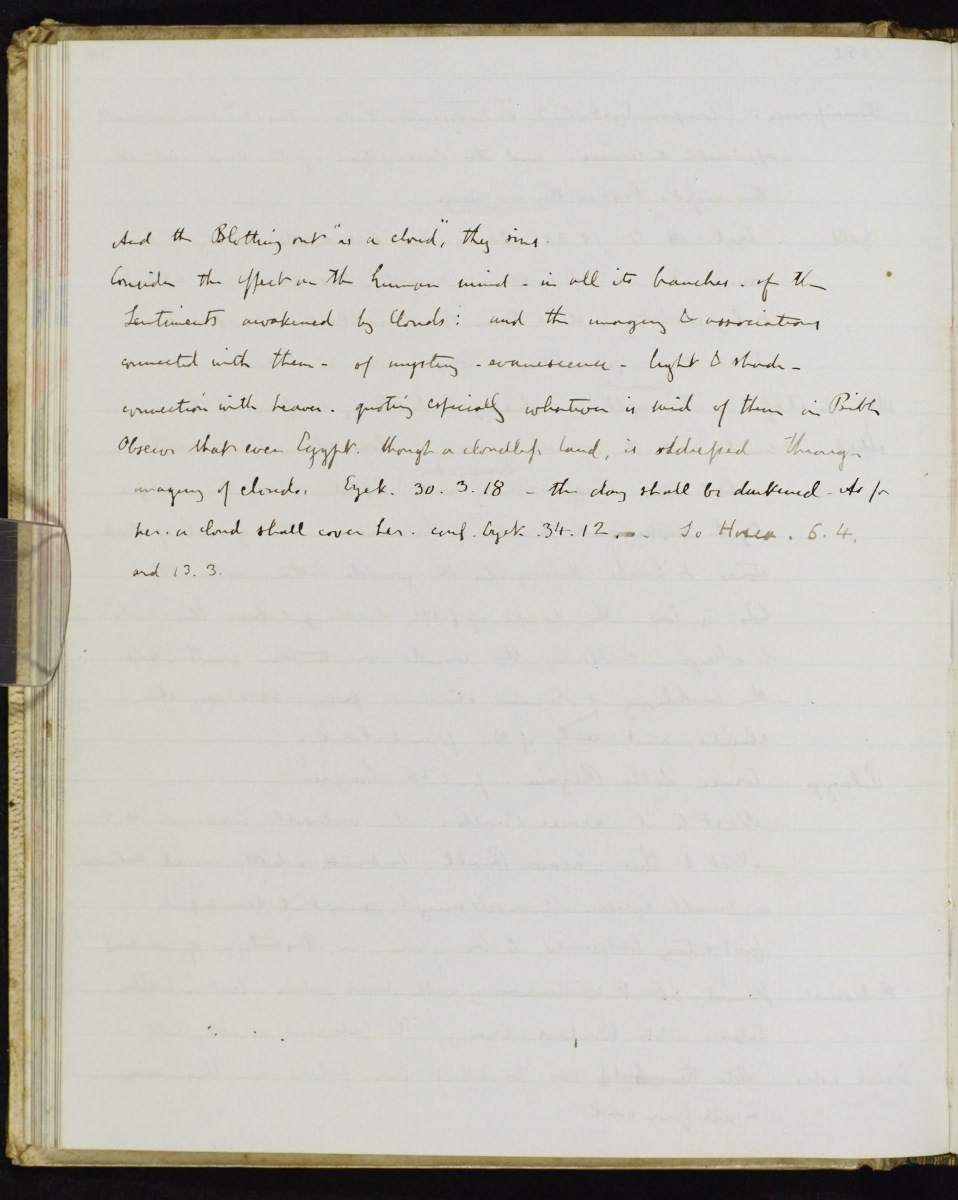 And the Blotting out "as a cloud", thy sins.
Consider the effect on the human mind - in all its branches - of the
Sentiments awakened by Clouds: and the imagery & associations
connected with them - of mystery - evanescence - light & shade -
connection with heaven - quoting especially whatever is said of them in Bible
Observe that even Egypt. though a cloudless land, is addressed through
imagery of clouds. Ezek. 30. 3. 18 - the day shall be darkened - As for
her. a cloud shall cover her. conf. Ezek. 34. 12. - So Hosea. 6. 4.
and 13. 3.